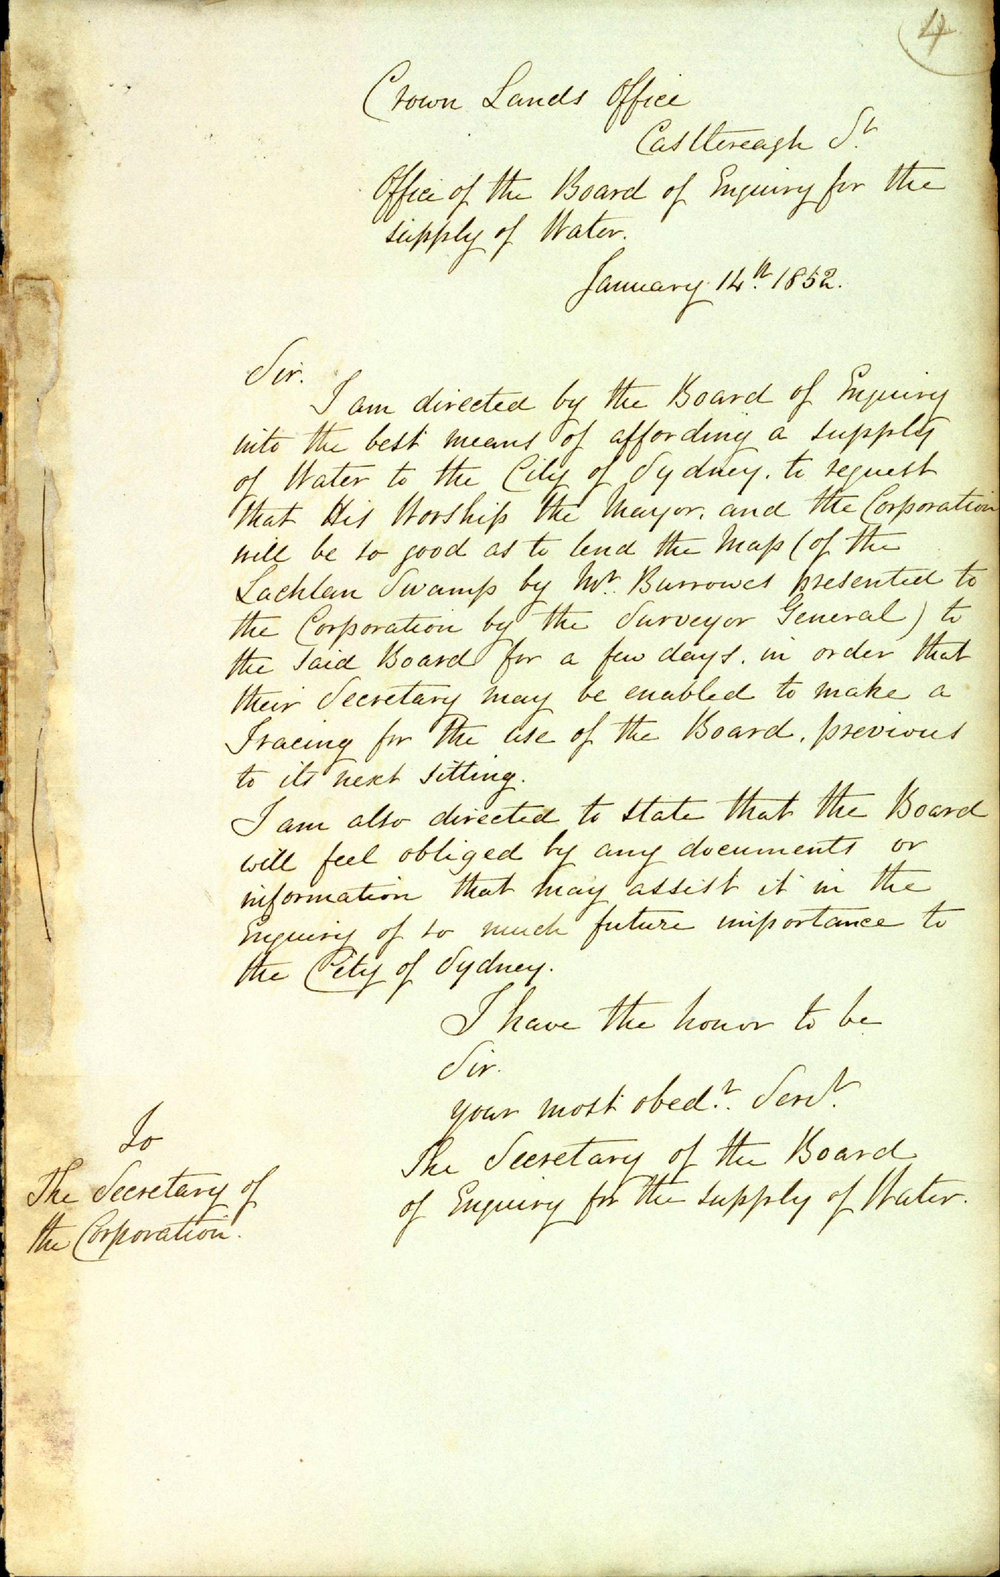 4
Crown Lands Office
Castlereagh St
Office of the Board of Enquiry for the
supply of Water.
January 14th 1852.
Sir.
I am directed by the Board of Enquiry
into the best means of affording a supply
of Water to the City of Sydney, to request
that His Worship the Mayor, and the Corporation
will be so good as to lend the Map (of the
Lachlan Swamp by Mr. Burrowes presented to
the Corporation by the Surveyor General) to
the said Board for a few days, in order that
their Secretary may be enabled to make a
Tracing for the use of the Board, previous
to its next sitting.
I am also directed to state that the Board
will feel obliged by any documents or
information that may assist it in the
Enquiry of so much future importance to
the City of Sydney.
I have the honor to be
Sir.
your most obedt. Servt.
The Secretary of the Board
of Enquiry for the supply of Water.
To
The Secretary of
the Corporation.